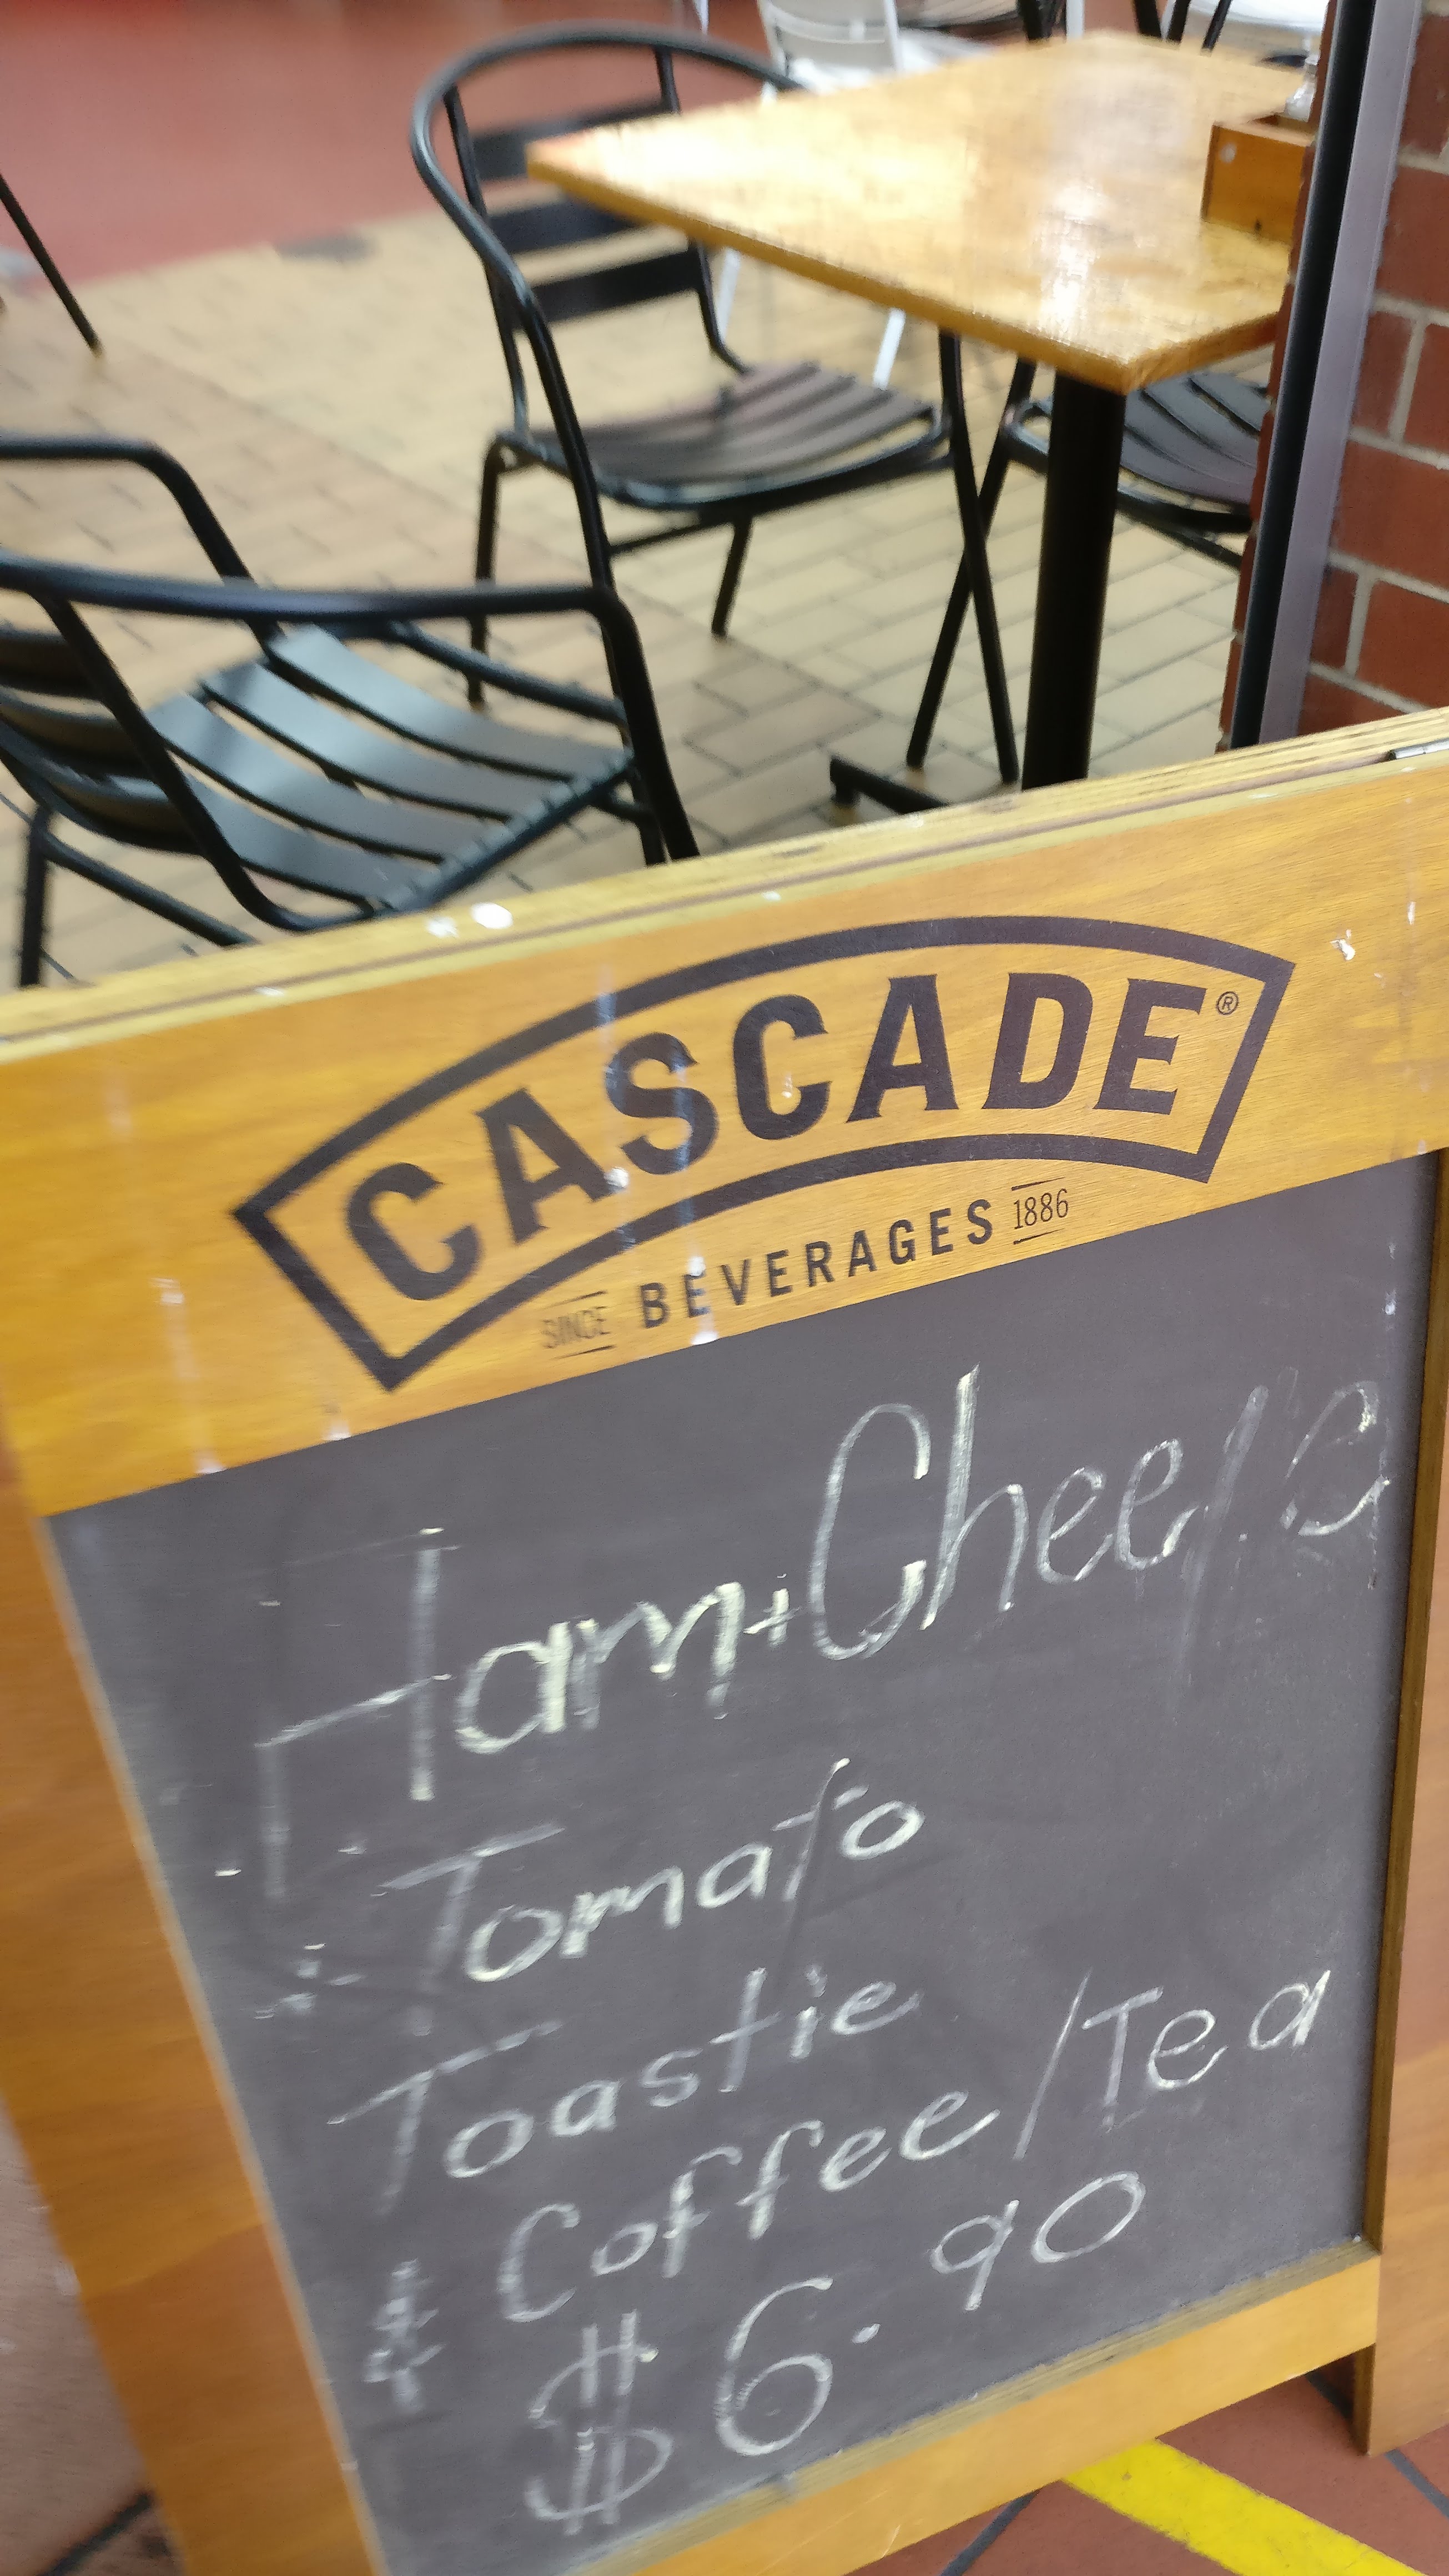 CASCADE®
SINCE BEVERAGES 1886
Ham + Cheese
Tomato
Toastie
& Coffee/Tea
$6.90